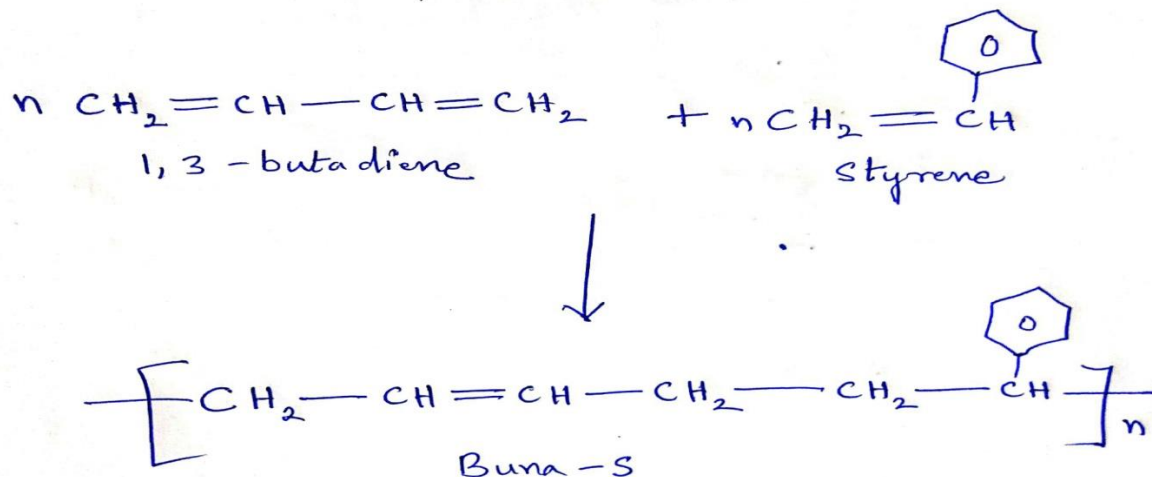 n CH₂=CH—CH=CH₂ + n CH₂=CH
1, 3 - butadiene styrene
[CH₂—CH=CH—CH₂—CH₂—CH]n
Buna-S